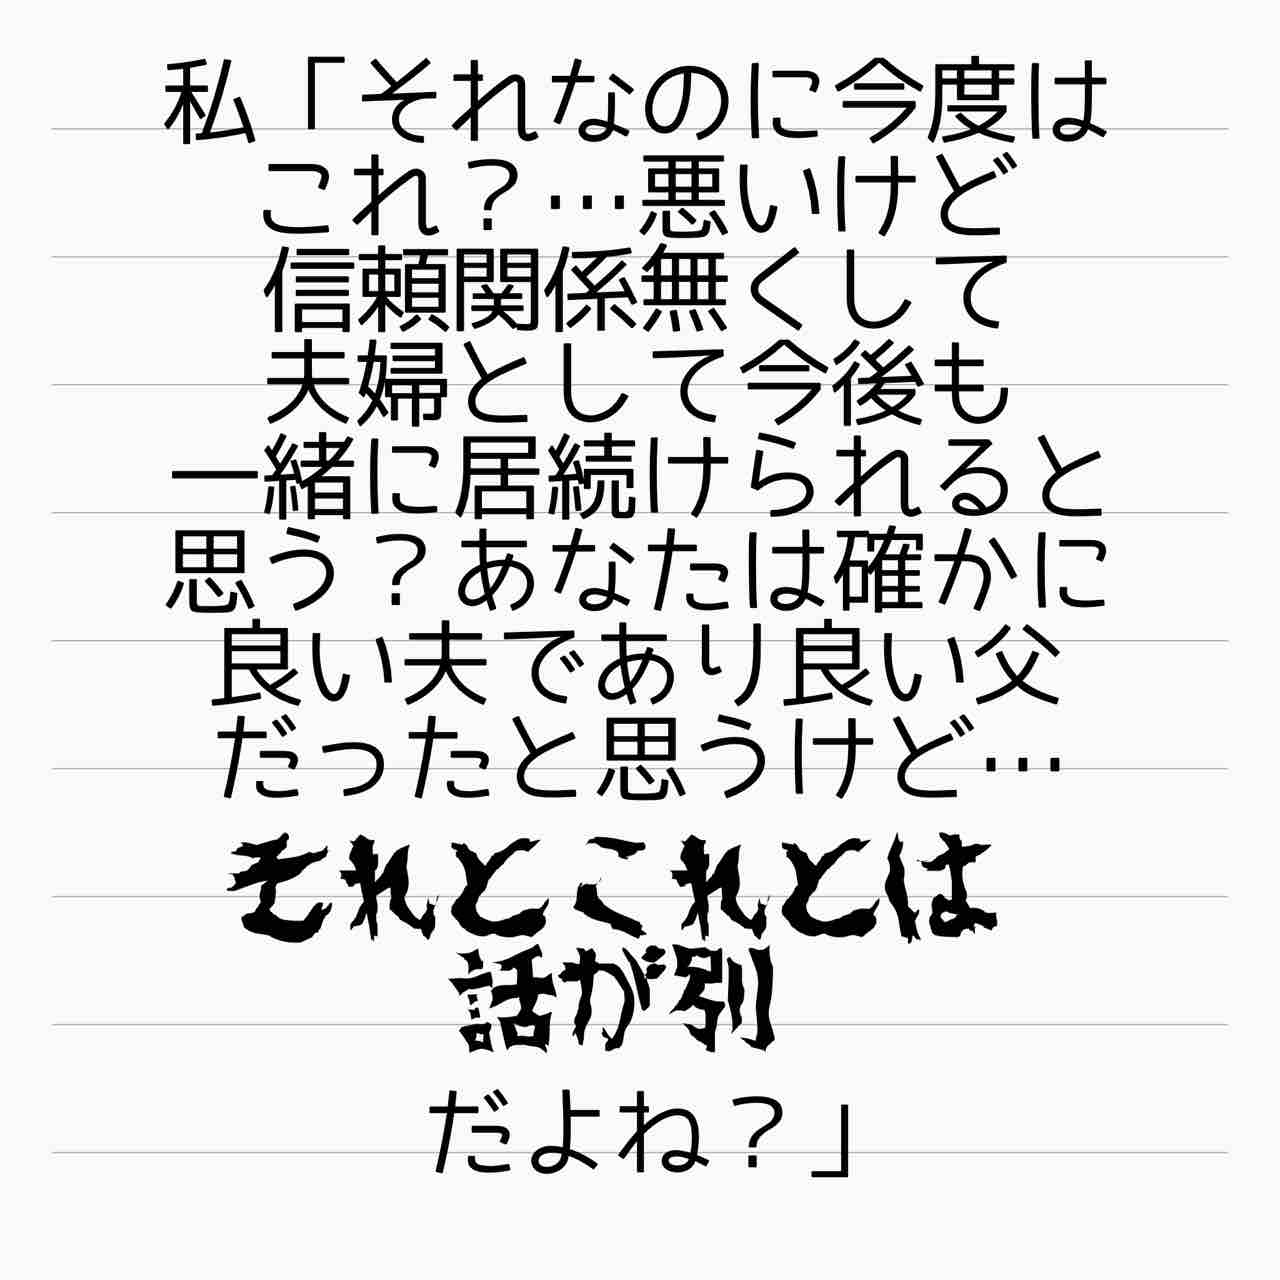 私「それなのに今度は
これ？…悪いけど
信頼関係無くして
夫婦として今後も
一緒に居続けられると
思う？あなたは確かに
良い夫であり良い父
だったと思うけど…
それとこれとは
話が別
だよね？」